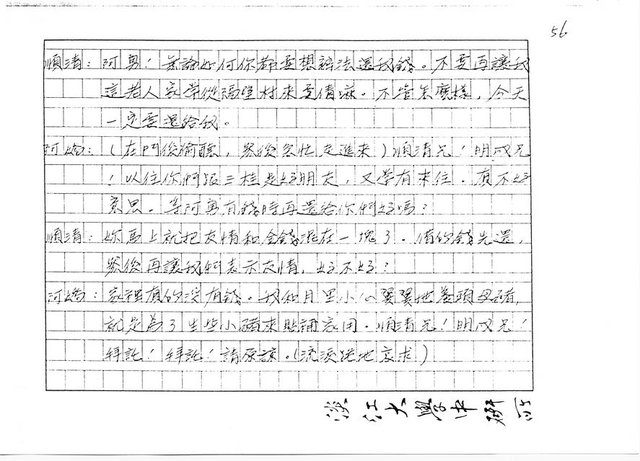 56
順清：阿勇！無論如何你都要想辦法還我錢。不要再讓我
這老人家常從隔壁村來要債麻。不管怎麼樣，今天
一定要還給我。
阿嬌：（在門後偷聽，然後急忙走進來）順清兄！明成兄
！以往你們跟三桂是好朋友，又常有來往。真不好
意思。等阿勇有錢時再還給你們好嗎？
順清：你馬上就把友情和金錢混在一塊了。債你錢先還，
然後再讓我們表示友情，好不好？
阿嬌：家裡真的沒有錢。我每日里小心翼翼地養頭母豬，
就是為了生些小豬來貼補家用。順清兄！明成兄！
拜託！拜託！請原諒。（流淚跪地哀求）
淡江大學中研所